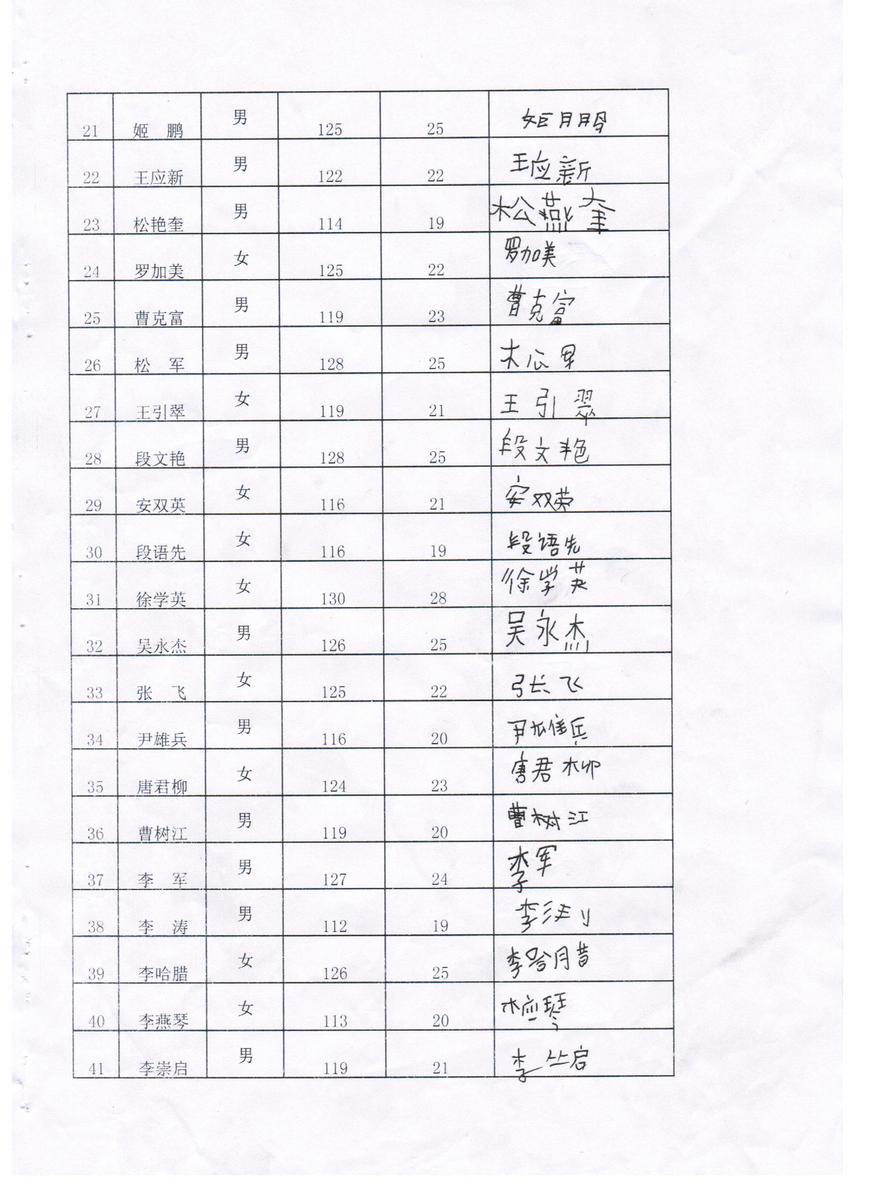 21 姬 鹏 男 125 25 姬鹏
22 王应新 男 122 22 王应新
23 松艳奎 男 114 19 松燕奎
24 罗加美 女 125 22 罗加美
25 曹克富 男 119 23 曹克富
26 松 军 男 128 25 松军
27 王引翠 女 119 21 王引翠
28 段文艳 男 128 25 段文艳
29 安双英 女 116 21 安双英
30 段语先 女 116 19 段语先
31 徐学英 女 130 28 徐学英
32 吴永杰 男 126 25 吴永杰
33 张 飞 女 125 22 张飞
34 尹雄兵 男 116 20 尹雄兵
35 唐君柳 女 124 23 唐君柳
36 曹树江 男 119 20 曹树江
37 李 军 男 127 24 李军
38 李 涛 男 112 19 李
39 李哈腊 女 126 25 李哈腊
40 李燕琴 女 113 20
41 李崇启 男 119 21 李丛启